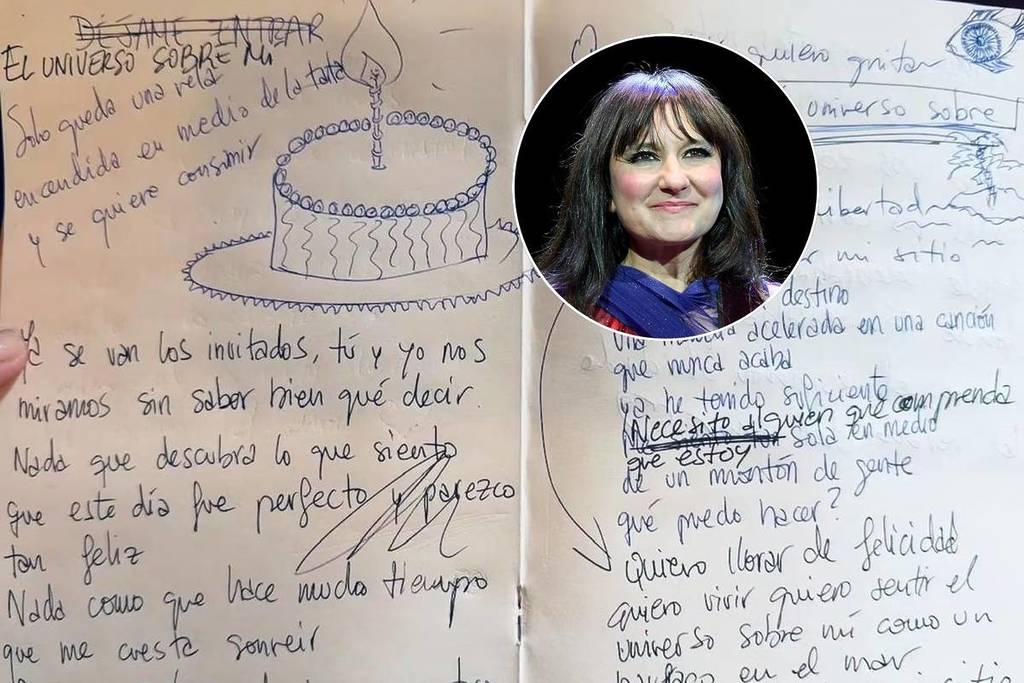 DÉJAME ENTRAR
EL UNIVERSO SOBRE MÍ
Solo queda una vela
encendida en medio de la tarta
y se quiere consumir
Ya se van los invitados, tú y yo nos
miramos sin saber bien qué decir.
Nada que descubra lo que siento
que este día fue perfecto y parezco
tan feliz
Nada como que hace mucho tiempo
que me cuesta sonreir
quiero gritar
universo sobre
libertad
mi sitio
destino
acelerada en una canción
que nunca acaba
ya he tenido suficiente
Necesito alguien que comprenda
que estoy sola en medio
de un montón de gente
qué puedo hacer?
Quiero llorar de felicidad
quiero vivir quiero sentir el
universo sobre mí como un
en el mar